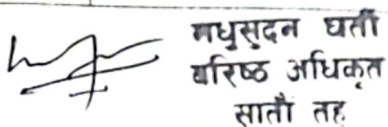 मधुसुदन घर्ती
वरिष्ठ अधिकृत
सातौ तह